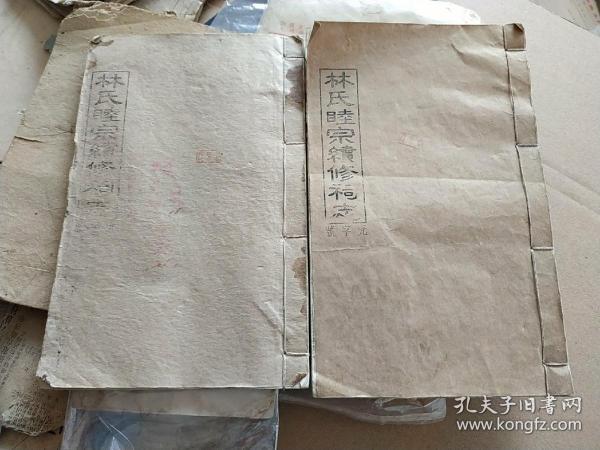 林氏睦宗續修祠志
林氏睦宗續修祠志
元字號
孔夫子旧书网
www.kongfz.com